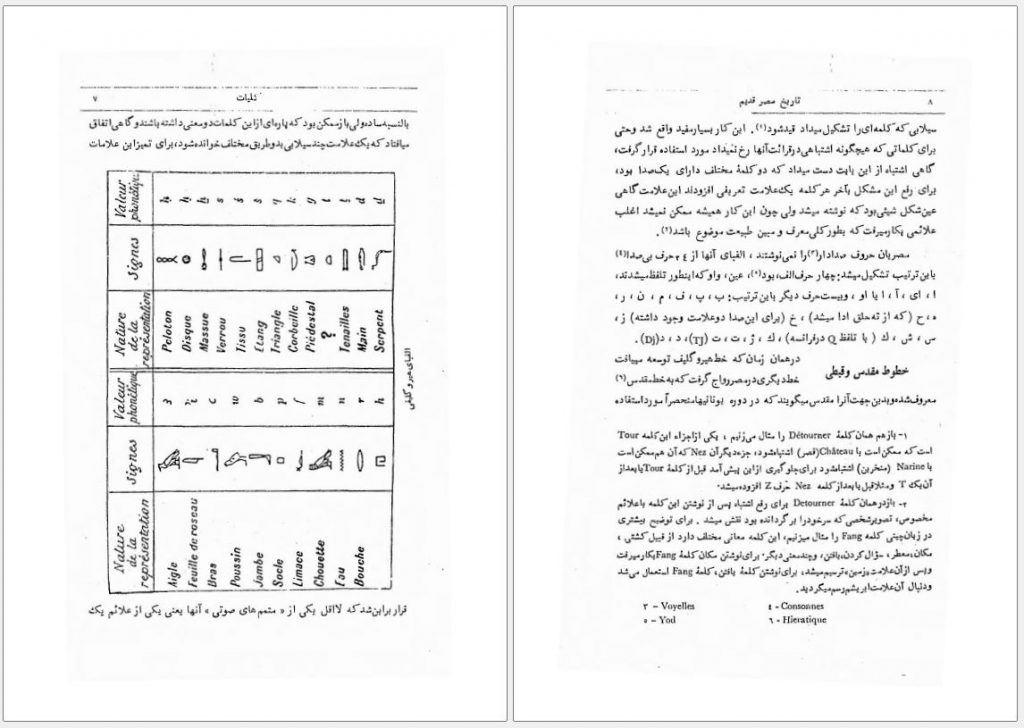 ۷ کلیات
بالنسبه ساده ولی باز ممکن بود که پاره‌ای از این کلمات دو معنی داشته باشند و گاهی اتفاق
میافتاد که یک علامت چند سیلابی بدو طریق مختلف خوانده شود، برای تمیز این علامات
Nature de la représentation Signes Valeur phonétique
Aigle 3
Feuille de roseau
Bras c
Poussin w
Jambe b
Socle p
Limace f
Chouette m
Eau n
Bouche r
h
Nature de la représentation Signes Valeur phonétique
Peloton ḥ
Disque ḫ
Massue ẖ
Verrou s
Tissu ś
Etang š
Triangle q
Corbeille k
Piédestal g
? t
Tenailles ṯ
Main d
Serpent ḏ
الفبای هیروگلیفی
قرار بر این شد که لااقل یکی از « متمم های صوتی » آنها یعنی یکی از علائم یک
تاریخ مصر قدیم ۸
سیلابی که کلمه‌ای را تشکیل میداد قید شود(۱). این کار بسیار مفید واقع شد وحتی
برای کلماتی که هیچگونه اشتباهی در قرائت آنها رخ نمیداد مورد استفاده قرار گرفت،
گاهی اشتباه از این بابت دست میداد که دو کلمهٔ مختلف دارای یک صدا بود،
برای رفع این مشکل بآخر هر کلمه یک علامت تعریفی افزودند این علامت گاهی
عین شکل شیئی بود که نوشته میشد ولی چون این کار همیشه ممکن نمیشد اغلب
علائمی بکار میرفت که بطور کلی معرف و مبین طبیعت موضوع باشد(۲).
مصریان حروف صدادار(۳) را نمی‌نوشتند ، الفبای آنها از ۲۴ حرف بی صدا(۴)
باین ترتیب تشکیل میشد: چهار حرف الف، یود(۵)، عین، واو که اینطور تلفظ میشدند،
ا ، ای ، آ ، ا یا او ، وبیست حرف دیگر باین ترتیب: ب ، پ ، ف ، م ، ن ، ر ،
ه ، ح (که از ته حلق ادا میشد) ، خ (برای این صدا دو علامت وجود داشته) ز ،
س ، ش ، ك ( با تلفظ Q در فرانسه) ، ك ، ژ ، ت ، ت (TJ)، د ، د (Dj).
خطوط مقدس و قبطی
در همان زمان که خط هیروگلیف توسعه مییافت
خط دیگری در مصر رواج گرفت که به خط مقدس(۶)
معروف شده و بدین جهت آنرا مقدس میگویند که در دوره یونانیها منحصراً مورد استفاده
۱- باز هم همان کلمهٔ Détourner را مثال می‌زنیم ، یکی از اجزاء این کلمه Tour
است که ممکن است با Château (قصر) اشتباه شود، جزء دیگر آن Nez که آن هم ممکن است
با Narine (منخرین) اشتباه شود برای جلوگیری از این پیش آمد قبل از کلمهٔ Tour یا بعد از
آن یک T ومثلا قبل یا بعد از کلمه Nez حرف Z افزوده میشد.
۲- باز در همان کلمهٔ Detourner برای رفع اشتباه پس از نوشتن این کلمه با علائم
مخصوص، تصویر شخصی که سر خود را بر گردانده بود نقش میشد . برای توضیح بیشتری
در زبان چینی کلمه Fang را مثال میزنیم، این کلمه معانی مختلف دارد از قبیل کشتی ،
مکان، معطر، سؤال کردن، بافتن، وچند معنی دیگر. برای نوشتن مکان کلمهٔ Fang بکار میرفت
و پس از آن علامت «زمین» ترسیم میشد، برای نوشتن کلمهٔ بافتن، کلمهٔ Fang استعمال می شد
و دنبال آن علامت ابریشم رسم میگردید.
۳ – Voyelles ۴ - Consonnes
۵ – Yod ۶ - Hieratique